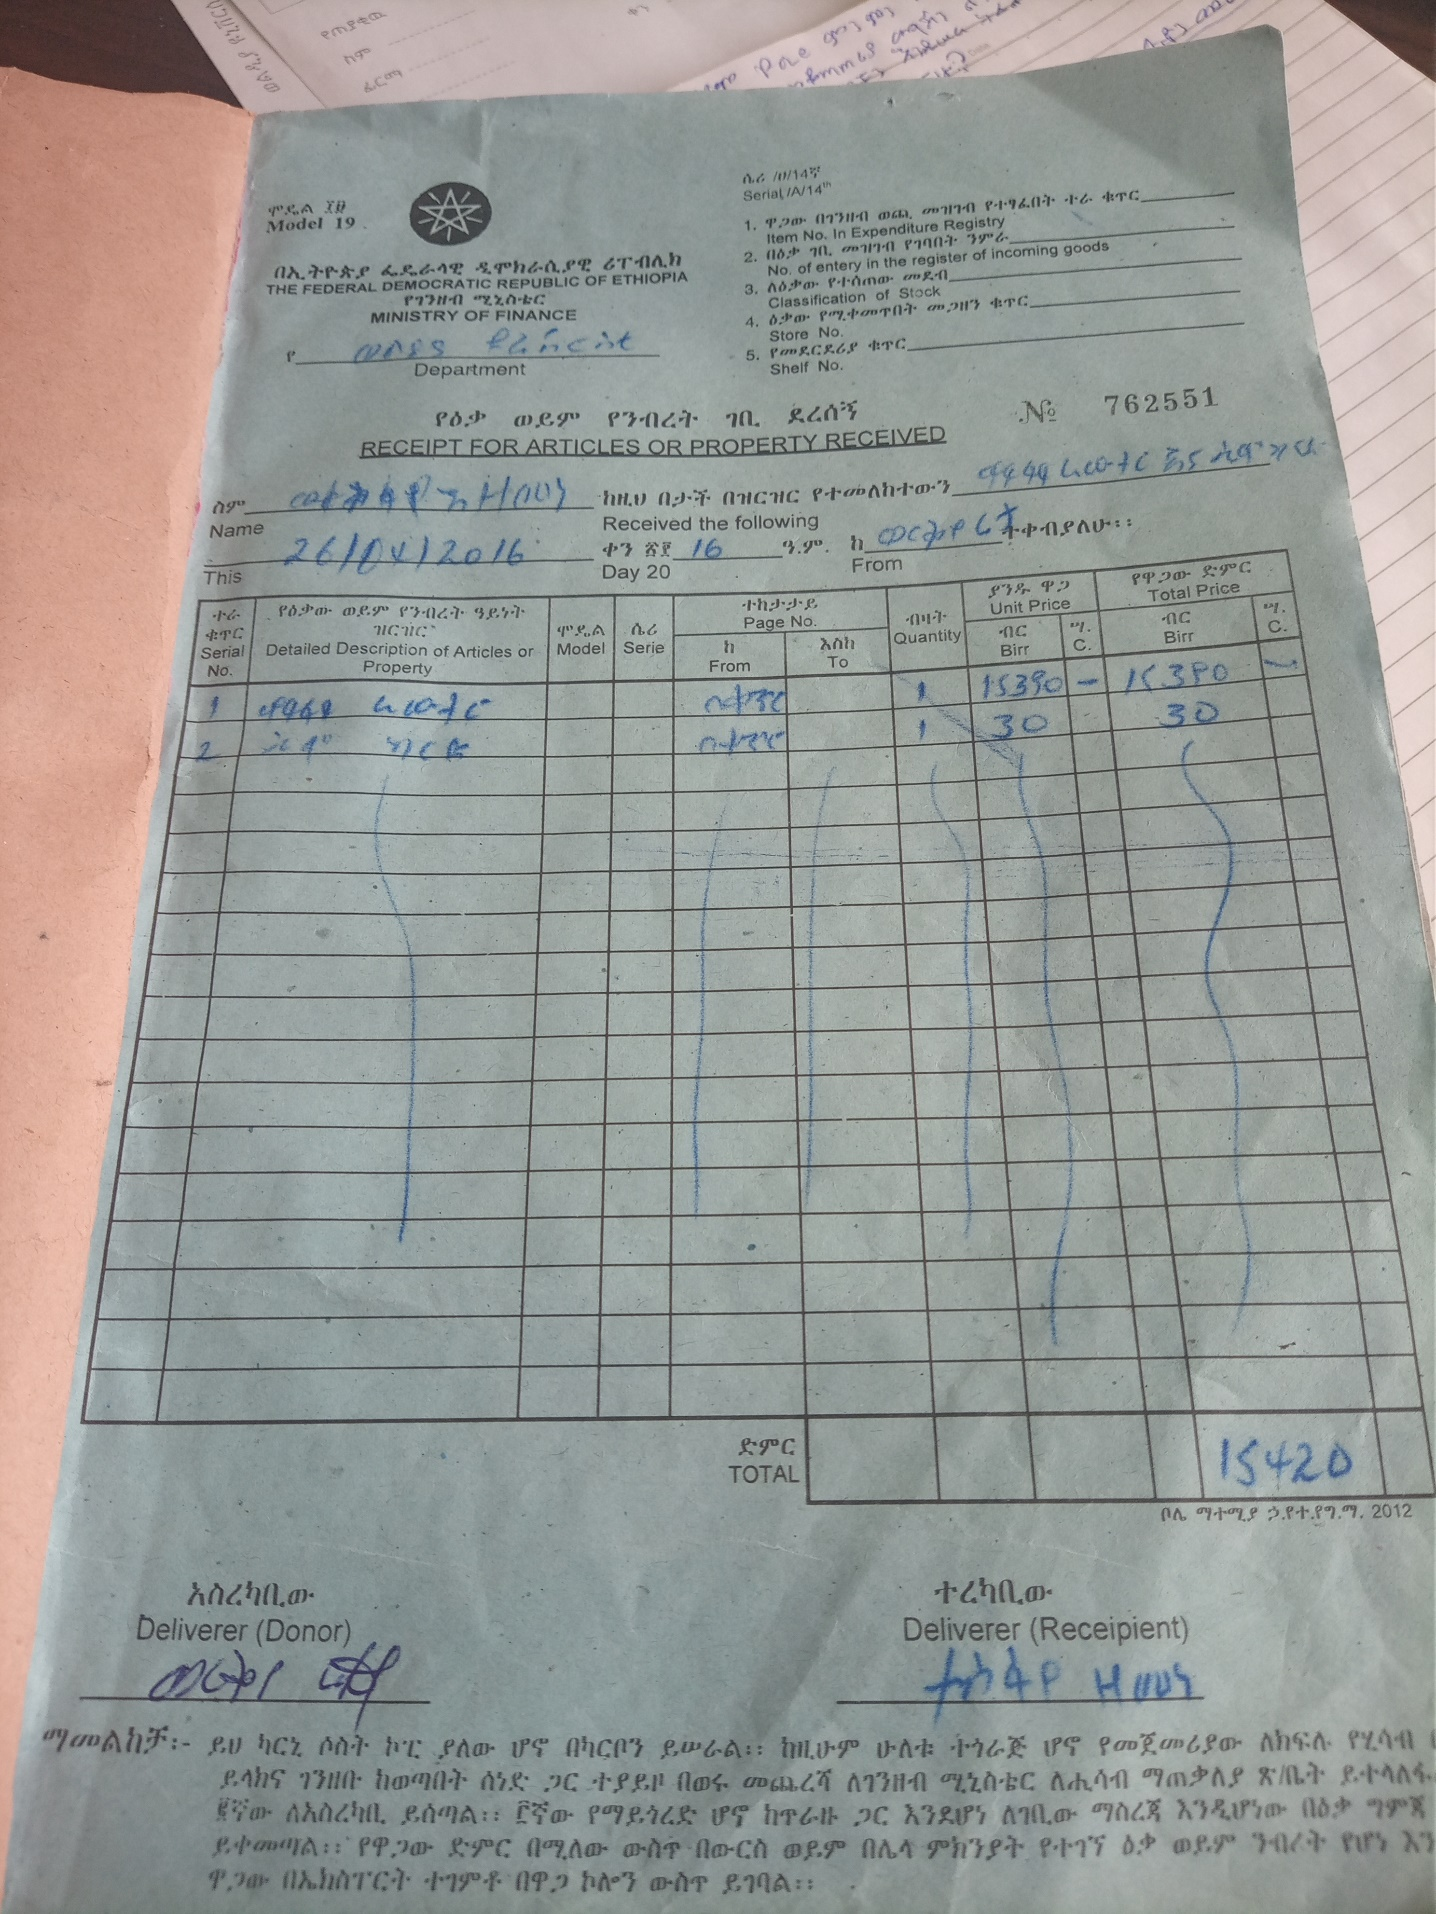 ሞዴል ፲፱
Model 19
በኢትዮጵያ ፌዴራላዊ ዲሞክራሲያዊ ሪፐብሊክ
THE FEDERAL DEMOCRATIC REPUBLIC OF ETHIOPIA
የገንዘብ ሚኒስቴር
MINISTRY OF FINANCE
የ
Department
ሴሪ /ሀ/14ኛ
Serial /A/14th
1. ዋጋው በገንዘብ ወጪ መዝገብ የተፃፈበት ተራ ቁጥር
Item No. In Expenditure Registry
2. በዕቃ ገቢ መዝገብ የገባበት ንምራ
No. of entery in the register of incoming goods
3. ለዕቃው የተሰጠው መደብ
Classification of Stock
4. ዕቃው የሚቀመጥበት መጋዘን ቁጥር
Store No.
5. የመደርደሪያ ቁጥር
Shelf No.
የዕቃ ወይም የንብረት ገቢ ደረሰኝ
№ 762551
RECEIPT FOR ARTICLES OR PROPERTY RECEIVED
ስም ከዚህ በታች በዝርዝር የተመለከተውን
Name Received the following
26/04/2016 ቀን ፳፻ 16 ዓ.ም. ከ ተቀብያለሁ፡፡
This Day 20 From
ተራ ቁጥር Serial No.
የዕቃው ወይም የንብረት ዓይነት ዝርዝር
Detailed Description of Articles or Property
ሞዴል Model
ሴሪ Serie
ተከታታይ Page No.
ከ From
እስከ To
ብዛት Quantity
ያንዱ ዋጋ Unit Price
ብር Birr
ሣ. C.
የዋጋው ድምር Total Price
ብር Birr
ሣ. C.
1 በቁጥር 1 15390 - 15390 -
2 ካርድ በቁጥር 1 30 30
ድምር
TOTAL 15420
ቦሌ ማተሚያ ኃ.የተ.የግ.ማ. 2012
አስረካቢው
Deliverer (Donor)
ተረካቢው
Deliverer (Receipient)
ማመልከቻ፡- ይህ ካርኒ ሶስት ኮፒ ያለው ሆኖ በካርቦን ይሠራል፡፡ ከዚሁም ሁለቱ ተጎራጅ ሆኖ የመጀመሪያው ለክፍሉ የሂሳብ
ይላክና ገንዘቡ ከወጣበት ሰነድ ጋር ተያይዞ በወሩ መጨረሻ ለገንዘብ ሚኒስቴር ለሒሳብ ማጠቃለያ ጽ/ቤት ይተላለፋ
፪ኛው ለአስረካቢ ይሰጣል፡፡ ፫ኛው የማይጎረድ ሆኖ ከጥራዙ ጋር እንደሆነ ለገቢው ማስረጃ እንዲሆነው በዕቃ ግምጃ
ይቀመጣል፡፡ የዋጋው ድምር በሚለው ውስጥ በውርስ ወይም በሌላ ምክንያት የተገኘ ዕቃ ወይም ንብረት የሆነ
ዋጋው በኤክስፐርት ተገምቶ በዋጋ ኮሎን ውስጥ ይገባል፡፡